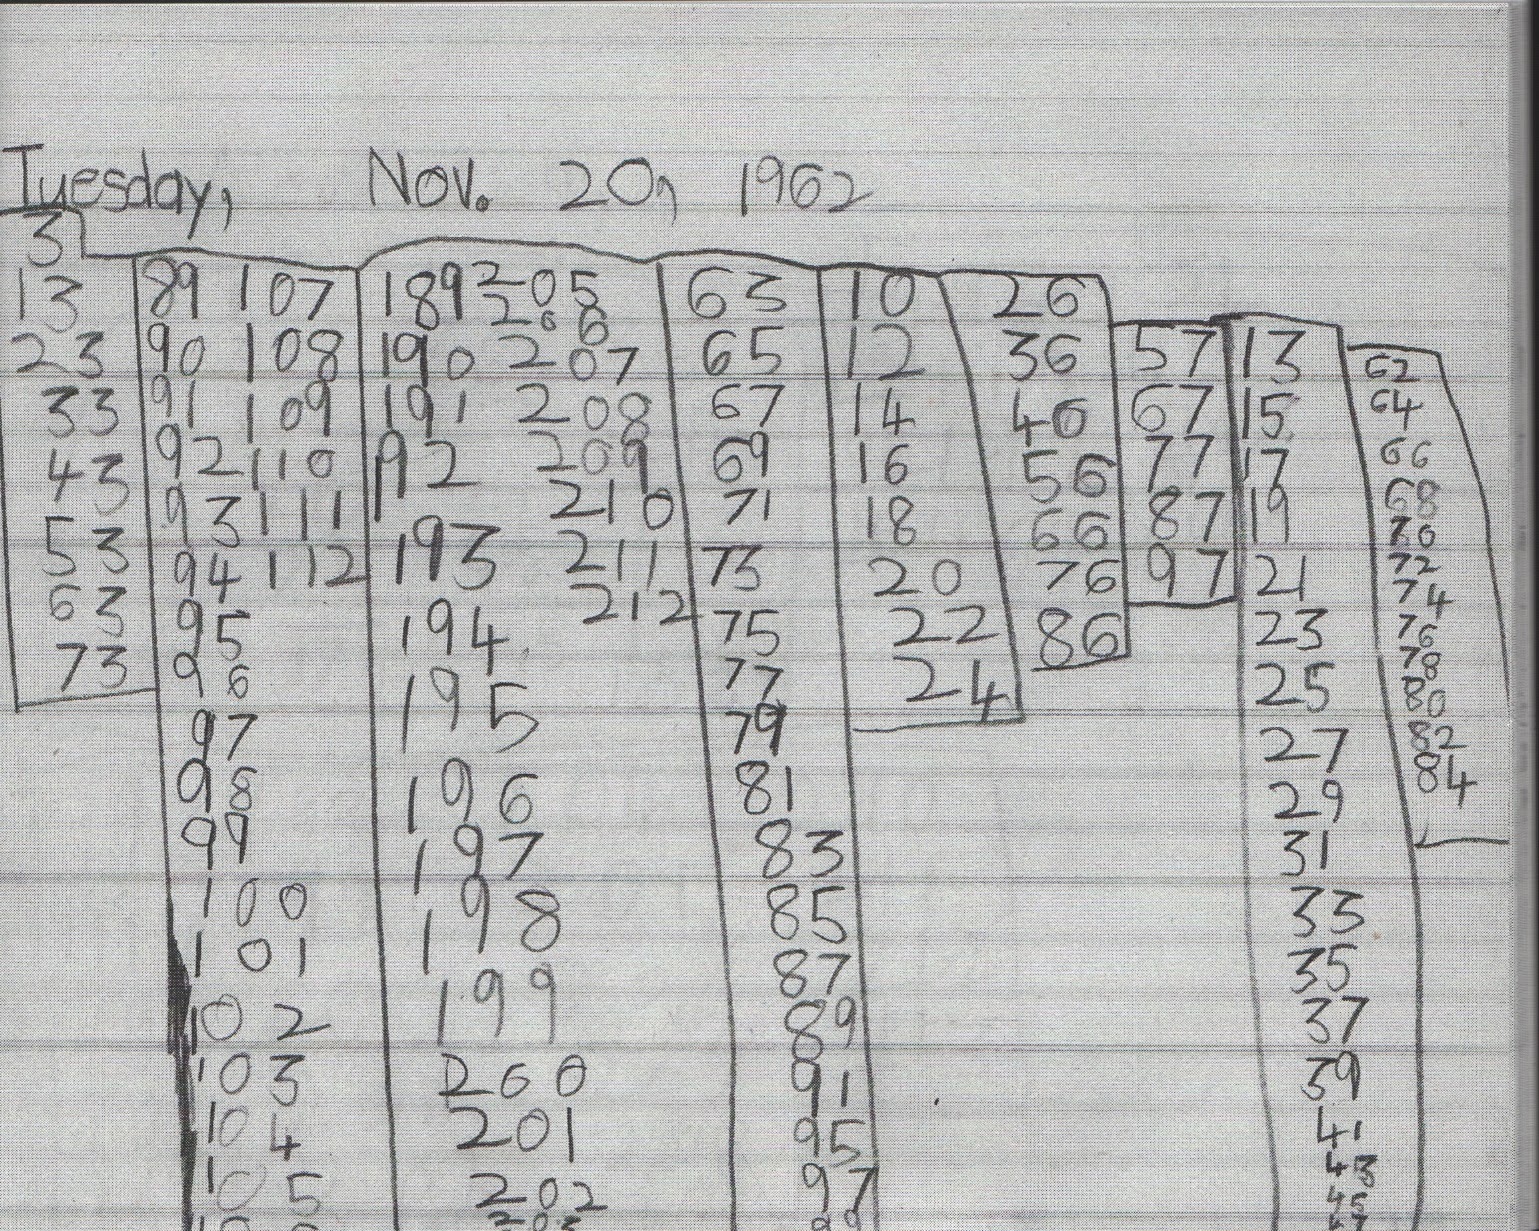 Tuesday, Nov. 20, 1962
3
13
23
33
43
53
63
73
89 107
90 108
91 109
92 110
93 111
94 112
95
96
97
98
99
100
101
102
103
104
105
189 205
206
190 207
191 208
192 209
210
193 211
212
194
195
196
197
198
199
200
201
202
203
63
65
67
69
71
73
75
77
79
81
83
85
87
89
91
95
97
99
10
12
14
16
18
20
22
24
26
36
46
56
66
76
86
57
67
77
87
97
13
15
17
19
21
23
25
27
29
31
33
35
37
39
41
43
45
62
64
66
68
70
72
74
76
78
80
82
84